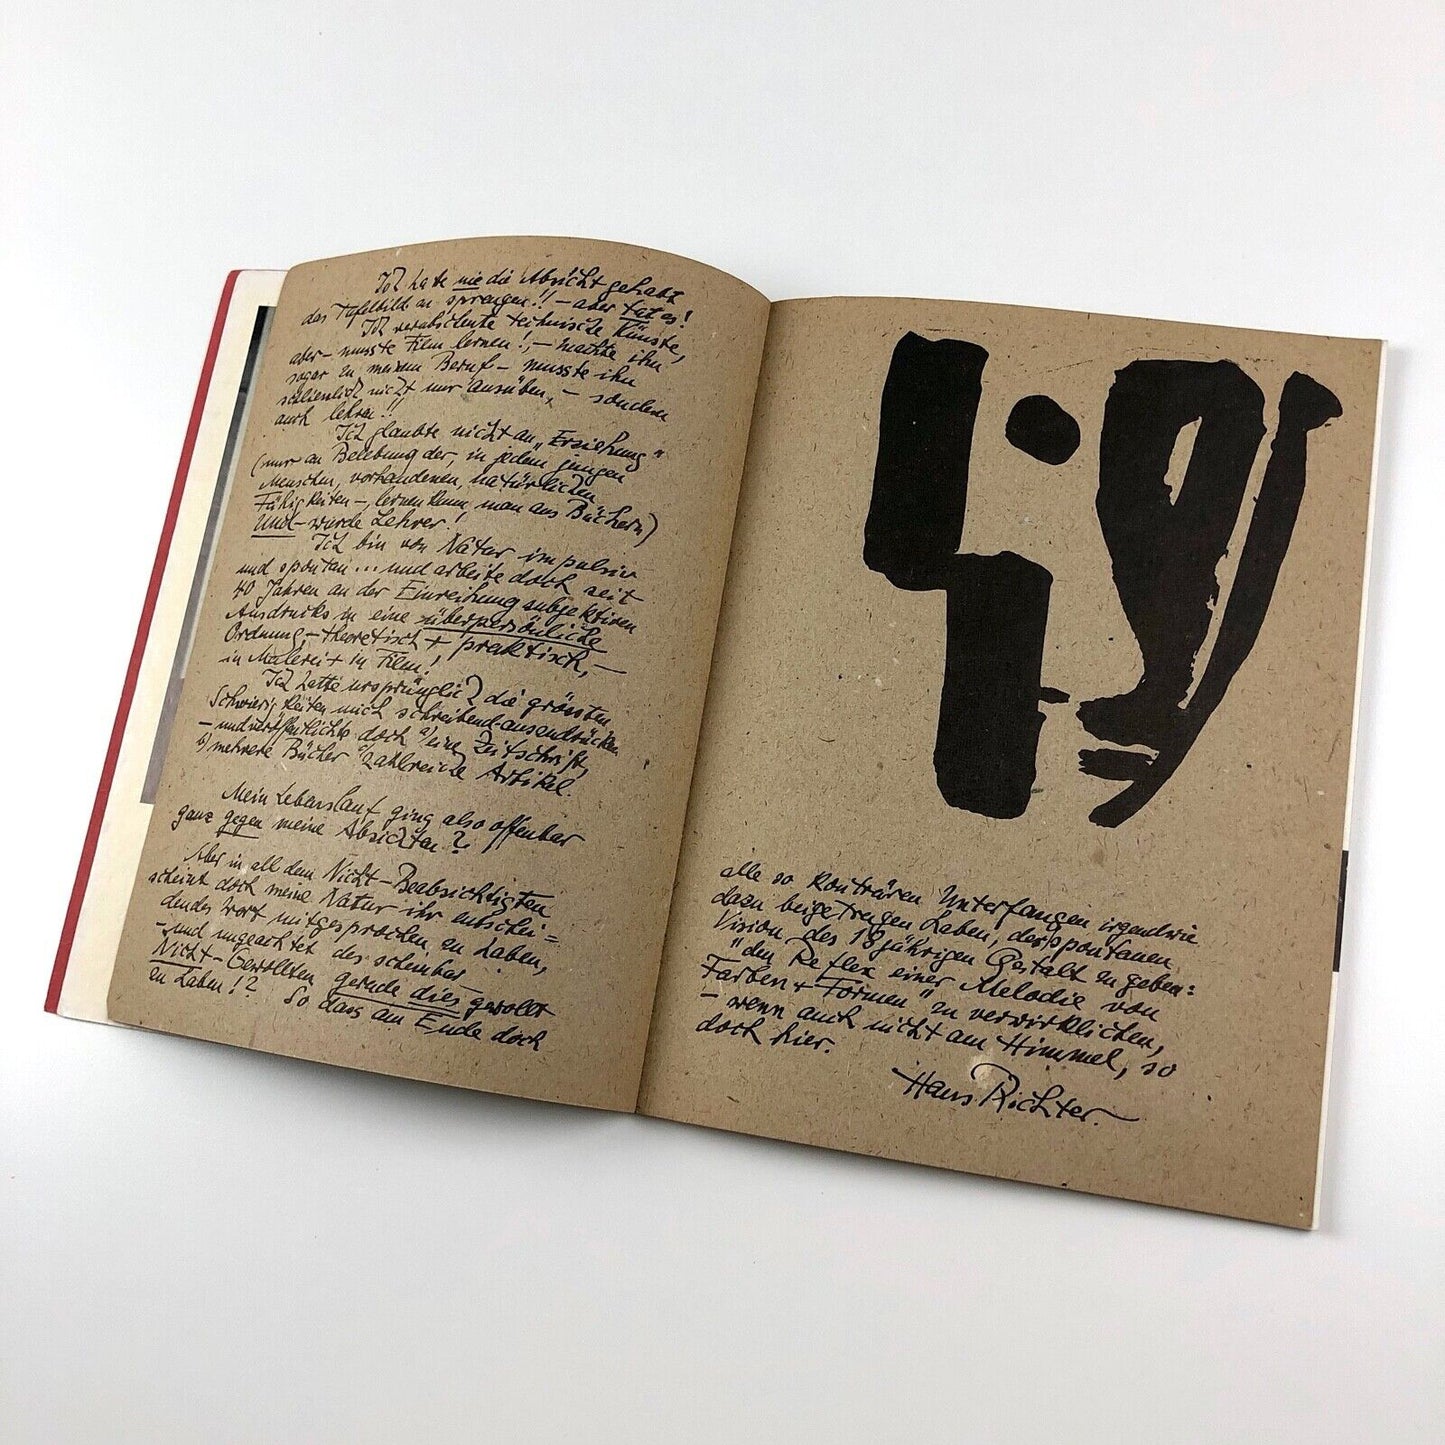 Ich hatte nie die Absicht gehabt
das Tafelbild zu sprengen!! – aber tat es!
Ich verabscheute technische Künste,
aber – musste Film lernen!, – machte ihn
sogar zu meinem Beruf – musste ihn
schlienlich nicht nur ausüben, – sondern
auch lehren!!
Ich glaubte nicht an „Erziehung"
(nur an Belebung der, in jedem jungen
Menschen, vorhandenen, natürlichen
Fähigkeiten –, lernen kann man aus Büchern)
Und – wurde Lehrer!
Ich bin von Natur impulsiv
und spontan... und arbeite doch seit
40 Jahren an der Einreihung subjektiven
Ausdrucks in eine überpersönliche
Ordnung, – theoretisch + praktisch, –
in Malerei + in Film!
Ich hatte ursprünglich die grössten
Schwierigkeiten mich schreibend auszudrücken
– und veröffentlichte doch a) eine Zeitschrift,
b) mehrere Bücher c) zahlreiche Artikel.
Mein Lebenslauf ging also offenbar
ganz gegen meine Absichten?
Aber in all dem Nicht-Beabsichtigten
scheint doch meine Natur ihr entschei=
dendes Wort mitgesprochen zu haben,
– und ungeachtet des scheinbar
Nicht-Gewollten gerade dies gewollt
zu haben!? So dass am Ende doch
alle so konträren Unterfangen irgendwie
dazu beigetragen haben, der spontanen
Vision des 18 jährigen Gestalt zu geben:
"den Reflex einer Melodie von
Farben + Formen" zu verwirklichen,
– wenn auch nicht am Himmel, so
doch hier.
Hans Richter.